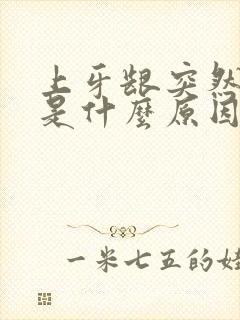 上牙龈突然
是什麼原因
一米七五的娃